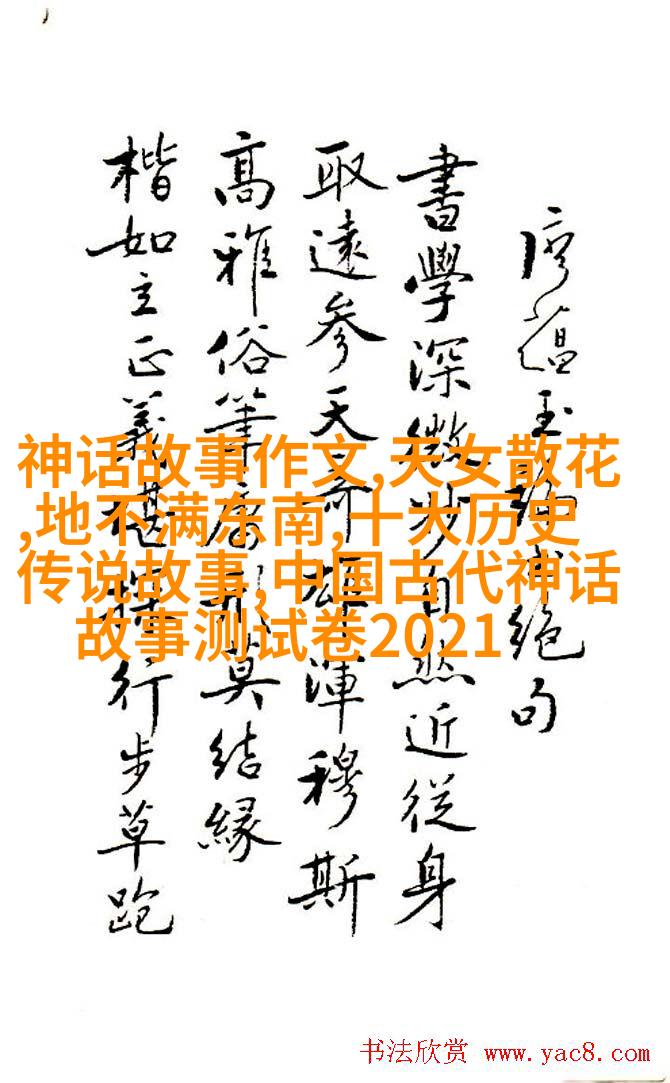 廖蘊玉絕句
書學深微妙自然近從身
取遠参天奇雄渾穆斯
高雅俗筆庸莫结縁
楷如立正義行步草跑
神话故事作文,天女散花
,地不满东南,十大历史
传说故事,中国古代神话
故事测试卷2021
书法欣赏 www.yac8.com